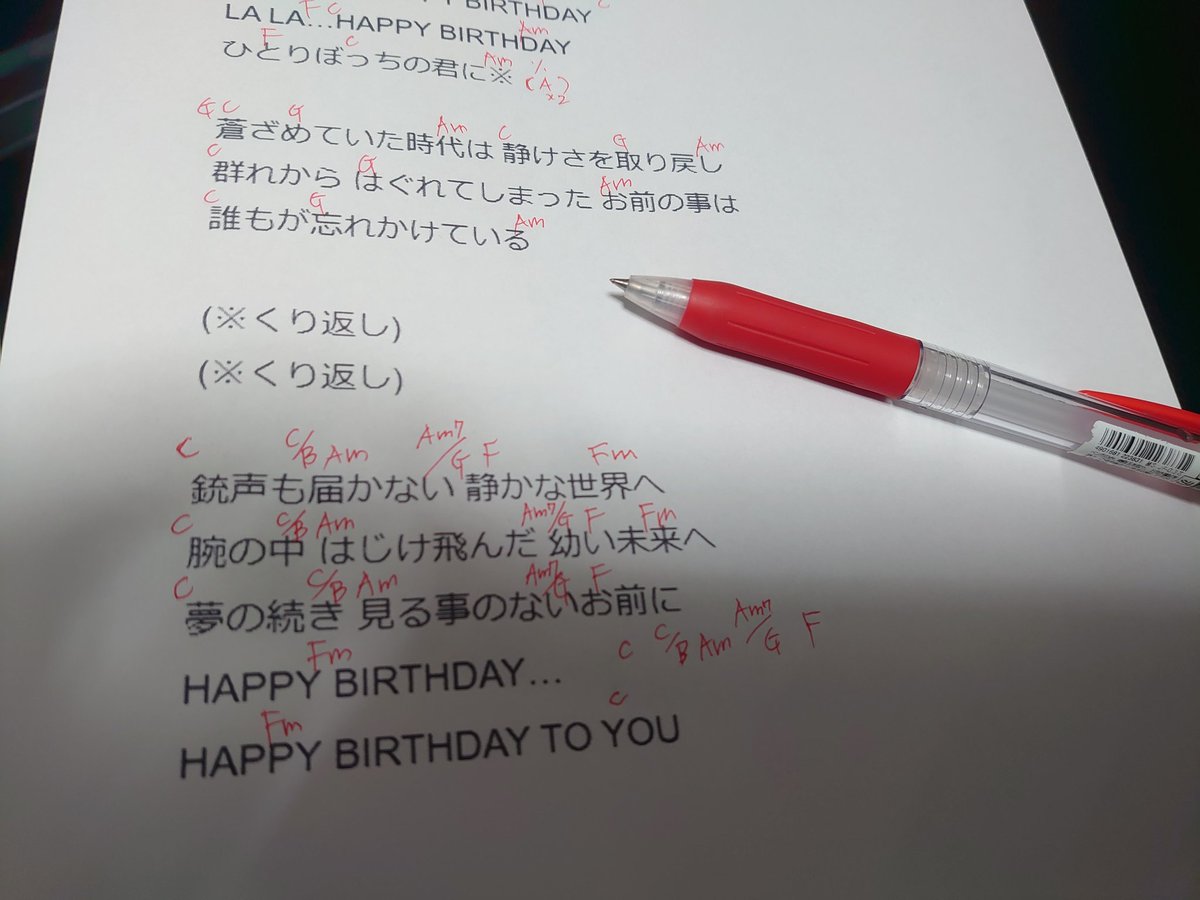 BIRTHDAY C
F C Am
LA LA…HAPPY BIRTHDAY
F C Am
ひとりぼっちの君に※ (A ×2)
G C G Am C G Am
蒼ざめていた時代は 静けさを取り戻し
C G Am
群れから はぐれてしまった お前の事は
C G Am
誰もが忘れかけている
(※くり返し)
(※くり返し)
C C/B Am Am7/G F Fm
銃声も届かない 静かな世界へ
C C/B Am Am7/G F Fm
腕の中 はじけ飛んだ 幼い未来へ
C C/B Am Am7/G F
夢の続き 見る事のないお前に
Fm C C/B Am Am7/G F
HAPPY BIRTHDAY…
Fm C
HAPPY BIRTHDAY TO YOU